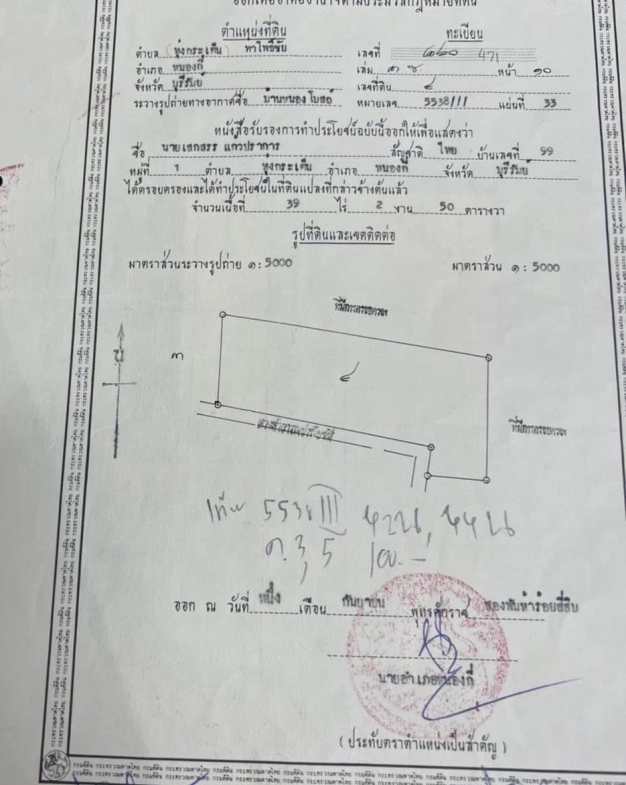 ตำแหน่งที่ดิน ทะเบียน
ตำบล (ทุ่งกระเต็น) ท่าโพธิ์ชัย เลขที่ 471
อำเภอ หนองกี่ เล่ม หน้า ๑๐
จังหวัด บุรีรัมย์ เลขที่ดิน ๔
ระวางรูปถ่ายทางอากาศชื่อ บ้านหนองโบสถ์ หมายเลข 5538III แผ่นที่ 33
หนังสือรับรองการทำประโยชน์ฉบับนี้ออกให้เพื่อแสดงว่า
ชื่อ สัญชาติ ไทย บ้านเลขที่ 99
หมู่ที่ 1 ตำบล ทุ่งกระเต็น อำเภอ หนองกี่ จังหวัด บุรีรัมย์
ได้ครอบครองและได้ทำประโยชน์ในที่ดินแปลงที่กล่าวข้างต้นแล้ว
จำนวนเนื้อที่ 39 ไร่ 2 งาน 50 ตารางวา
รูปที่ดินและเขตติดต่อ
มาตราส่วนระวางรูปถ่าย ๑ : 5000 มาตราส่วน ๑ : 5000
ที่มีการครอบครอง
น
๓
๔
ที่มีการครอบครอง
ทางสาธารณประโยชน์
5538 III
ด. 3, 5 100.-
ออก ณ วันที่ หนึ่ง เดือน กันยายน พุทธศักราช สองพันห้าร้อยสี่สิบ
นายอำเภอหนองกี่
(ประทับตราตำแหน่งเป็นสำคัญ)